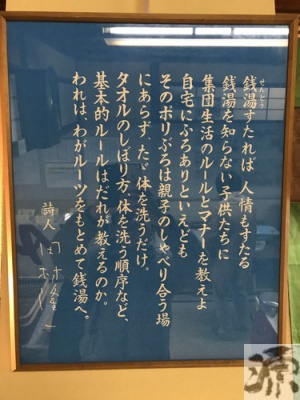 せんとう
銭湯すたれば 人情もすたる
銭湯を知らない子供たちに
集団生活のルールとマナーを教えよ
自宅にふろありといえども
そのポリぶろは親子のしゃべり合う場
にあらず、ただ体を洗うだけ。
タオルのしぼり方、体を洗う順序など、
基本的ルールはだれが教えるのか。
われは、わがルーツをもとめて銭湯へ。
詩人 田村隆一